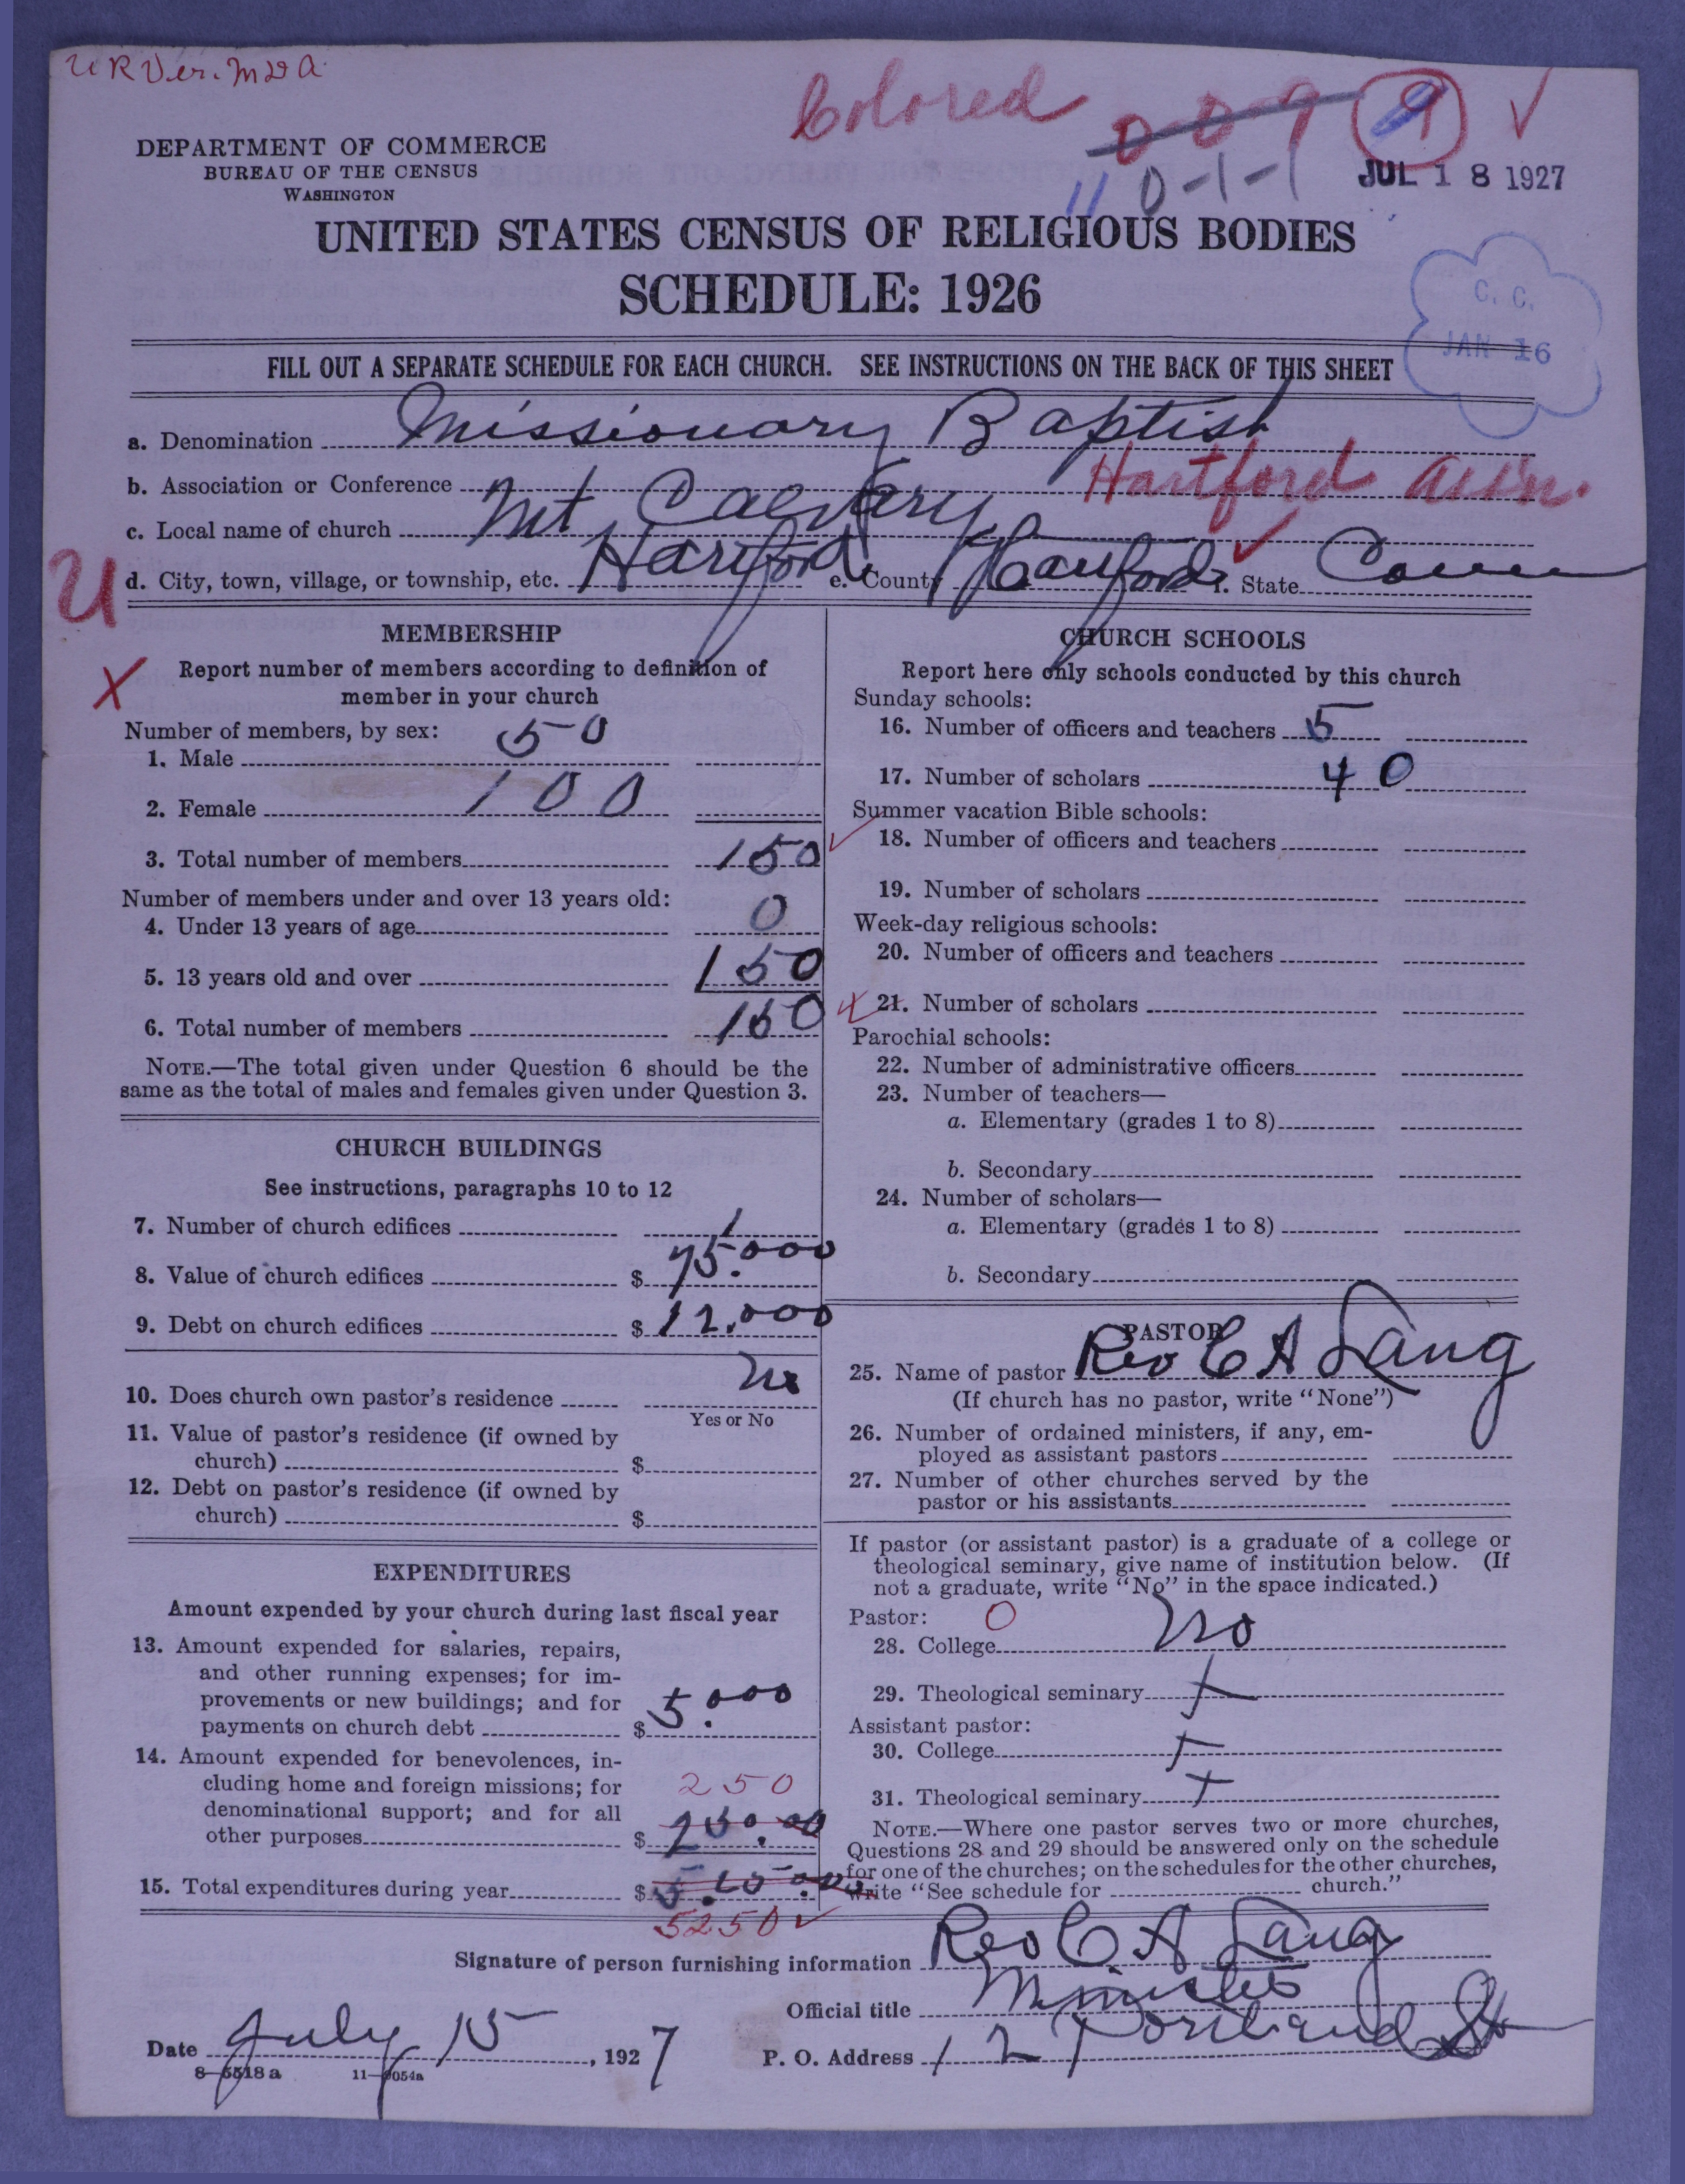 U R Ver. M & A.
Colored 009 9 ✓
11 0-1-1
JUL 18 1927
DEPARTMENT OF COMMERCE
BUREAU OF THE CENSUS
WASHINGTON
UNITED STATES CENSUS OF RELIGIOUS BODIES
SCHEDULE: 1926
C. C.
JAN 16
FILL OUT A SEPARATE SCHEDULE FOR EACH CHURCH. SEE INSTRUCTIONS ON THE BACK OF THIS SHEET
a. Denomination Missionary Baptist
b. Association or Conference Hartford assn.
c. Local name of church Mt Calvary
U d. City, town, village, or township, etc. Harford e. County Harford f. State Conn
MEMBERSHIP
X Report number of members according to definition of
member in your church
Number of members, by sex:
1. Male 50
2. Female 100
3. Total number of members 150 ✓
Number of members under and over 13 years old:
4. Under 13 years of age 0
5. 13 years old and over 150
6. Total number of members 150
NOTE.—The total given under Question 6 should be the
same as the total of males and females given under Question 3.
CHURCH BUILDINGS
See instructions, paragraphs 10 to 12
7. Number of church edifices 1
8. Value of church edifices $ 75.000
9. Debt on church edifices $ 12.000
10. Does church own pastor's residence No
Yes or No
11. Value of pastor's residence (if owned by
church) $
12. Debt on pastor's residence (if owned by
church) $
EXPENDITURES
Amount expended by your church during last fiscal year
13. Amount expended for salaries, repairs,
and other running expenses; for im-
provements or new buildings; and for
payments on church debt $ 5.000
14. Amount expended for benevolences, in-
cluding home and foreign missions; for 250
denominational support; and for all
other purposes $ 250.00
15. Total expenditures during year $
5250 ✓
CHURCH SCHOOLS
Report here only schools conducted by this church
Sunday schools:
16. Number of officers and teachers 5
17. Number of scholars 40
Summer vacation Bible schools:
18. Number of officers and teachers
19. Number of scholars
Week-day religious schools:
20. Number of officers and teachers
X 21. Number of scholars
Parochial schools:
22. Number of administrative officers
23. Number of teachers—
a. Elementary (grades 1 to 8)
b. Secondary
24. Number of scholars—
a. Elementary (grades 1 to 8)
b. Secondary
PASTOR
25. Name of pastor Rev C A Lang
(If church has no pastor, write "None")
26. Number of ordained ministers, if any, em-
ployed as assistant pastors
27. Number of other churches served by the
pastor or his assistants
If pastor (or assistant pastor) is a graduate of a college or
theological seminary, give name of institution below. (If
not a graduate, write "No" in the space indicated.)
Pastor: 0
28. College No
29. Theological seminary
Assistant pastor:
30. College
31. Theological seminary
NOTE.—Where one pastor serves two or more churches,
Questions 28 and 29 should be answered only on the schedule
for one of the churches; on the schedules for the other churches,
write "See schedule for church."
Signature of person furnishing information Rev C A Lang
Official title Minister
Date July 15, 1927 P. O. Address 12 Portland St
8—5518 a 11—9054a